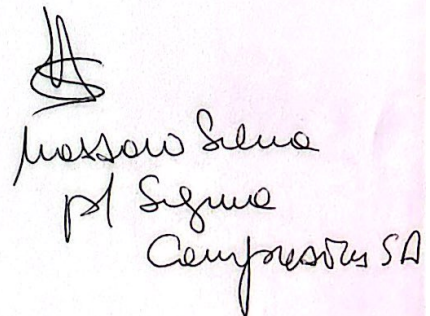 Massaro Silva
p/ Sigma
Compressores SA